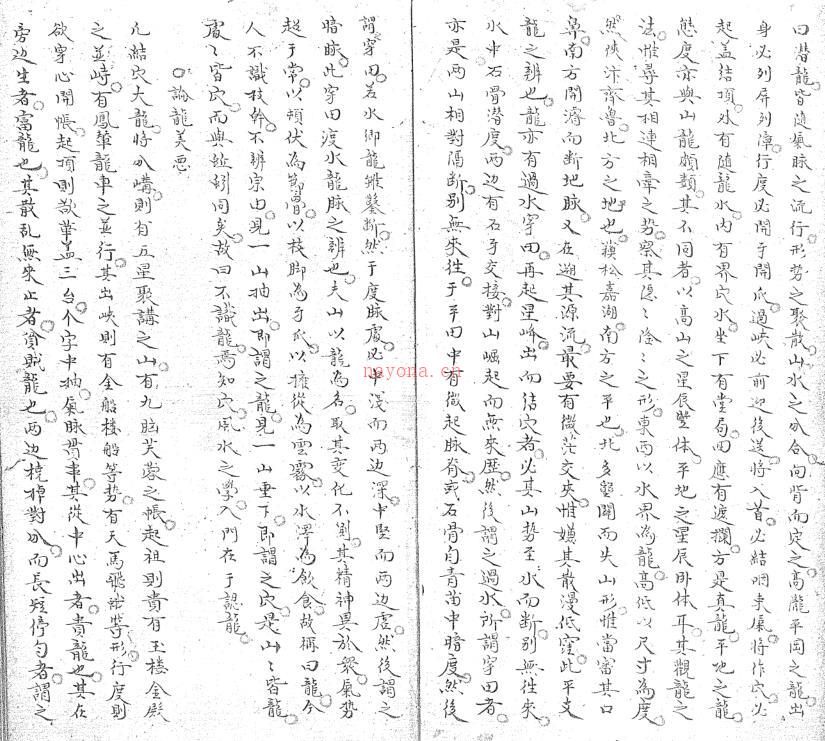 曰潛龍皆隨氣脉之流行形勢之聚散山水之分合向背而定之高隴平岡之龍出
身必列屏列漳行度必開手開爪過峽必前迎後送將入首必結咽束氣將作穴必
起盖結頂外有隨龍水內有界穴水坐下有堂局四應有遮攔方是真龍平地之龍
態度亦與山龍頗類其不同者以高山之星辰豎体平地之星辰卧体耳其觀龍之
法惟尋其相連相牽之势察其隱〻隆〻之形東西以水界為龍高低以尺寸為度
然陝汴齊魯北方之地也蘓松嘉湖南方之平也北多墾開而失山形惟當審其口
鼻南方開濬而断地脉又在遡其源流最要有微茫交夾惟嫌其散漫低窪此平支
龍之辨也龍亦有過水穿田再起星峰出而结穴者必其山势至水而断别無徃來
水中石骨潜度两边有石子交接對山崛起而無來歷然後謂之過水所謂穿田者
亦是两山相對隔断别無來徃于平田中有微起脉脊或石骨自青苗中暗度然後
謂穿田若水御龍雖鑿断然于度脉處必中浅而两边深中堅而两边虚然後謂之
暗脉此穿田渡水龍脉之辨也夫山以龍為名取其变化不測其精神異於衆氣勢
超于常以頓伏為節骨以枝脚為手爪以擁從為雲霧以水澤為飲食故稱曰龍今
人不識枝幹不辨宗由見一山抽出即謂之龍見一山垂下即謂之穴是山〻皆龍
處〻皆穴而與蚯蚓同矣故曰不識龍焉知穴風水之學入門在于認龍
論龍美惡
凡結穴大龍將分嶙則有五星聚講之山有九脑芙蓉之帳起祖則貴有玉楼金殿
之並峙有鳳輦龍車之並行其出峽則有金船楼船等势有天馬飛蛾等形行度則
欲穿心開帳起頂則欲華盖三台个字中抽氣脉貫串其從中心出者貴龍也其在
旁边生者富龍也其散乱無來止者貧贱龍也两边梹棹對分而長短停匀者謂之
nayona.cn